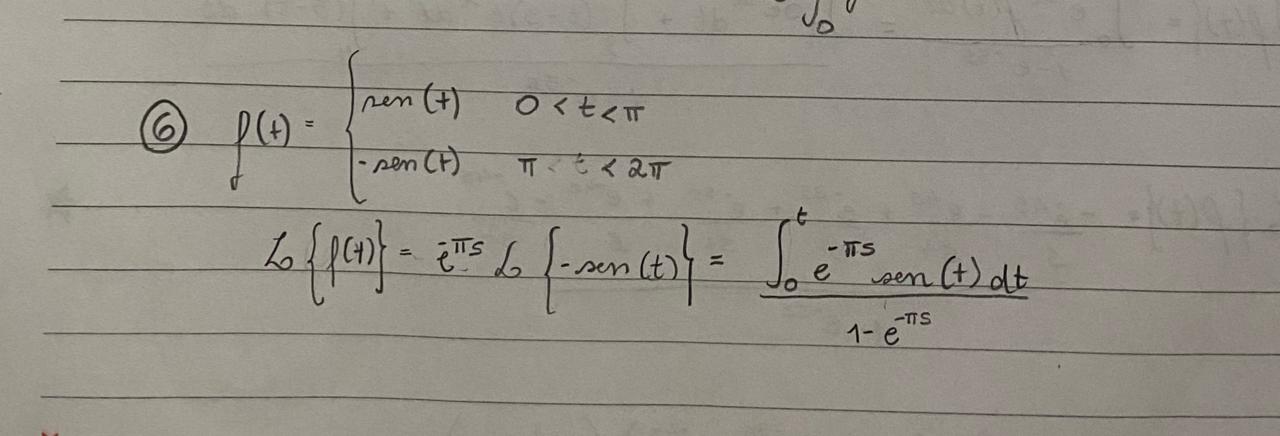 ⑥ f(t) = { sen(t) 0 < t < π
-sen(t) π < t < 2π
L{f(t)} = e^{-πs} L{-sen(t)} = ∫_0^t e^{-πs} sen(t) dt
1 - e^{-πs}